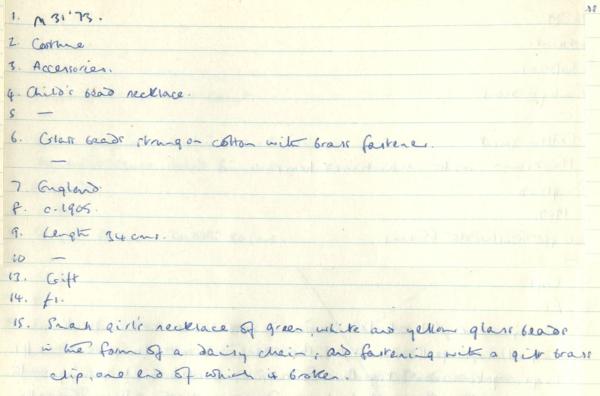 1. M31'73.
2. Costume
3. Accessories.
4. Child's bead necklace.
5 —
6. Glass beads strung on cotton with brass fastener.
—
7. England
8. c.1905.
9. Length 34 cms.
10 —
13. Gift
14. £1.
15. Small girl's necklace of green, white and yellow glass beads
in the form of a daisy chain, and fastening with a gilt brass
clip, one end of which is broken.